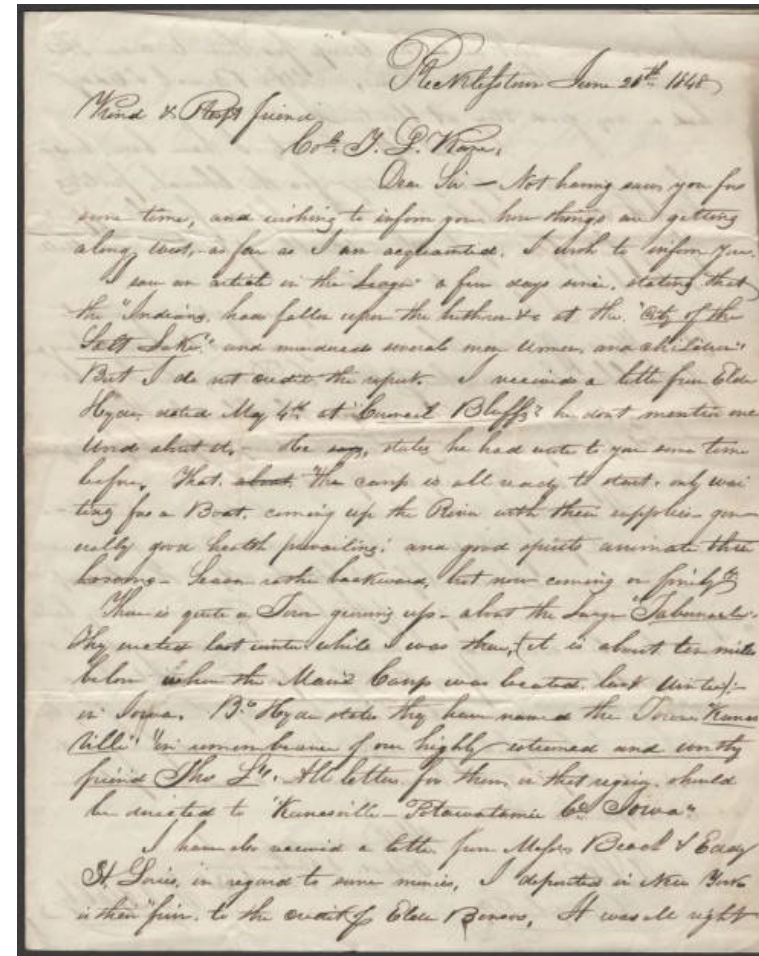 Recklesstown June 20th 1848
Kind & Respt friend
Col. T. L. Kane,
Dear Sir – Not having seen you for
some time, and wishing to inform you how things are getting
along, west, as far as I am acquainted. I wish to inform you.
I saw an article in the "Ledger" a few days since, stating that
the "Indians, had fallen upon the brethren &c at the "City of the
Salt Lake," and murdered several men women, and children"
But I do not credit the report. I received a letter from Elder
Hyde, dated May 4th at "Council Bluffs" he dont mention one
word about it. – He says, states he had wrote to you some time
before, That about The camp is all ready to start. only wai
ting for a Boat. coming up the River with their supplies – gen
erally good health prevailing; and good spirits animate thire
bosoms – Season rather backward, but now coming on finely
There is quite a Town growing up – about the Large "Tabernacle"
they erected last winter while I was there, (it is about ten miles
below where the Main Camp was located. last Winter) –
in Iowa. Br. Hyde states they have named the Town "Kanes
ville" "in remembrance of our highly esteemed and worthy
friend Thos L". All letters. for them, in that region, should
be directed to "Kanesville – Potawatamie Co Iowa"
I have also received a letter from Messrs Beach & Eddy
St Louis, in regard to some monies, I deposited in New York
in their firm. to the credit of Elder Benson, It was all right